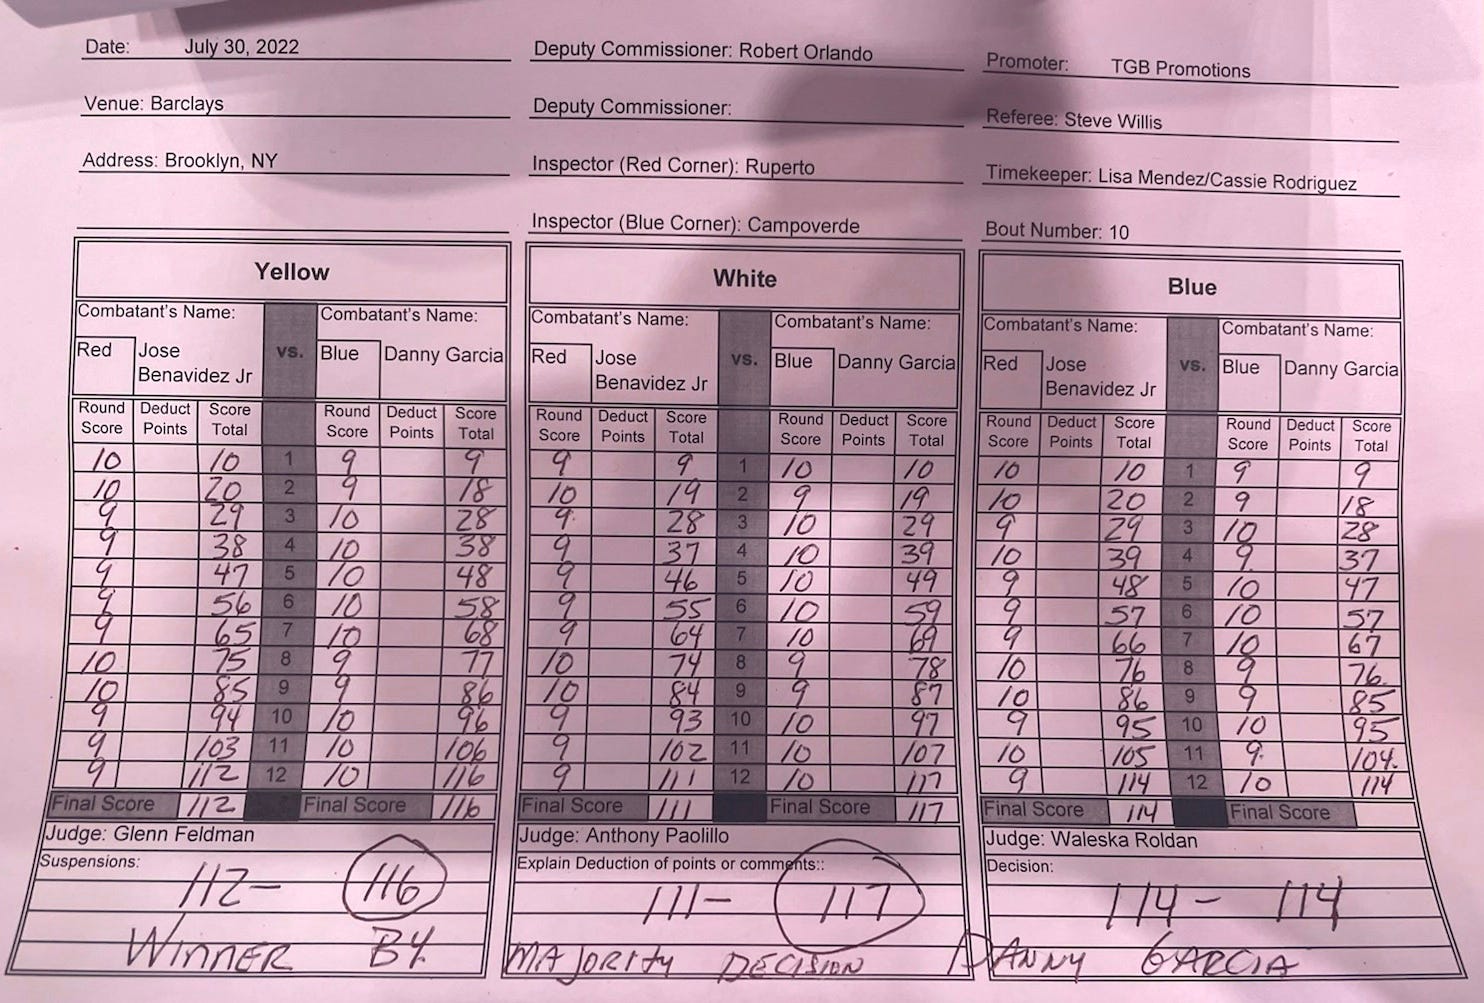 Date: July 30, 2022 Deputy Commissioner: Robert Orlando Promoter: TGB Promotions
Venue: Barclays Deputy Commissioner: Referee: Steve Willis
Address: Brooklyn, NY Inspector (Red Corner): Ruperto Timekeeper: Lisa Mendez/Cassie Rodriguez
Inspector (Blue Corner): Campoverde Bout Number: 10
Yellow White Blue
Combatant's Name: Combatant's Name: Combatant's Name: Combatant's Name: Combatant's Name: Combatant's Name:
Red Jose vs. Blue Danny Garcia Red Jose vs. Blue Danny Garcia Red Jose vs. Blue Danny Garcia
Benavidez Jr Benavidez Jr Benavidez Jr
Round Deduct Score Round Deduct Score Round Deduct Score Round Deduct Score Round Deduct Score Round Deduct Score
Score Points Total Score Points Total Score Points Total Score Points Total Score Points Total Score Points Total
10 10 1 9 9 9 9 1 10 10 10 10 1 9 9
10 20 2 9 18 10 19 2 9 19 10 20 2 9 18
9 29 3 10 28 9 28 3 10 29 9 29 3 10 28
9 38 4 10 38 9 37 4 10 39 10 39 4 9 37
9 47 5 10 48 9 46 5 10 49 9 48 5 10 47
9 56 6 10 58 9 55 6 10 59 9 57 6 10 57
9 65 7 10 68 9 64 7 10 69 9 66 7 10 67
10 75 8 9 77 10 74 8 9 78 10 76 8 9 76
10 85 9 9 86 10 84 9 9 87 10 86 9 9 85
9 94 10 10 96 9 93 10 10 97 9 95 10 10 95
9 103 11 10 106 9 102 11 10 107 10 105 11 9 104
9 112 12 10 116 9 111 12 10 117 9 114 12 10 114
Final Score 112 Final Score 116 Final Score 111 Final Score 117 Final Score 114 Final Score
Judge: Glenn Feldman Judge: Anthony Paolillo Judge: Waleska Roldan
Suspensions: Explain Deduction of points or comments:: Decision:
112- 116 111- 117 114 - 114
WINNER BY MAJORITY DECISION DANNY GARCIA